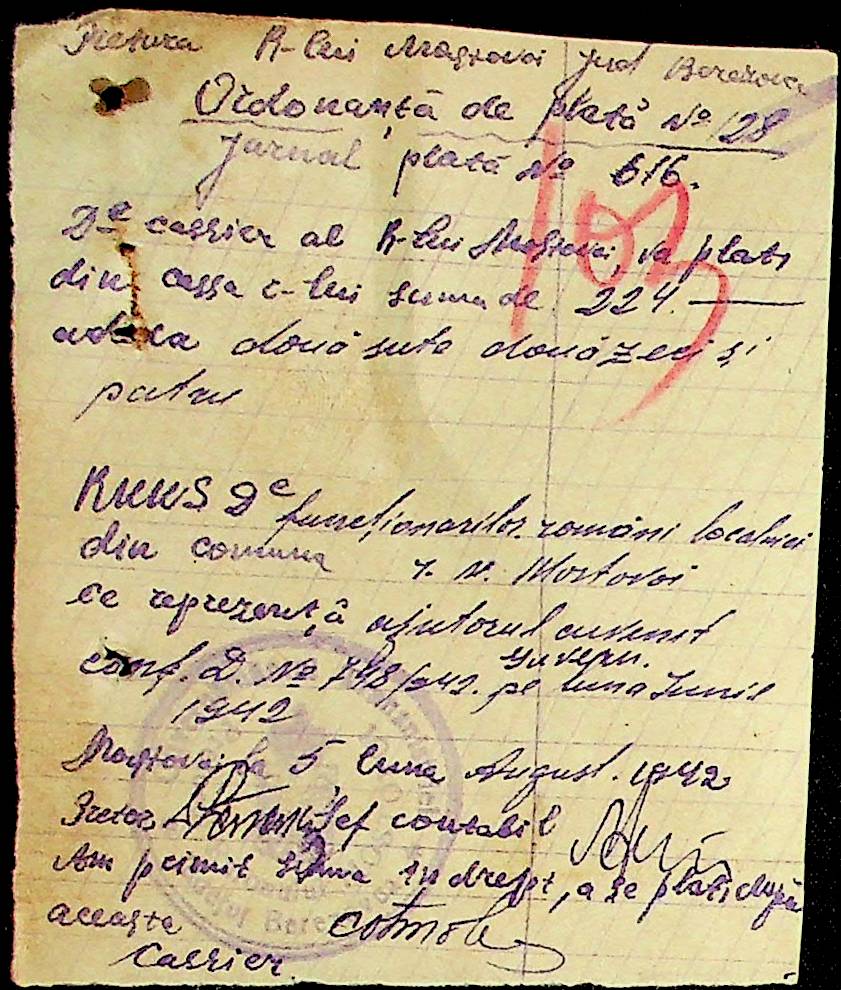 Pretura R-lui Mostovoi jud Berezovca
Ordonanță de plată № 128
Jurnal plată № 616.
103
De cassier al R-lui Mostovoi, va plati
din cassa c-lui suma de 224.
adeca două sute două zeci și
patru
RKKS De funcționarilor români localnici
din comuna Mostovoi
ce reprezentă ajutorul cuvenit
conf. D. № 748/942. pe luna Iunie
1942
Mostovoi la 5 luna August. 1942
Pretor Șef contabil
Am primit suma in drept, a se plati după
aceasta
Cassier.